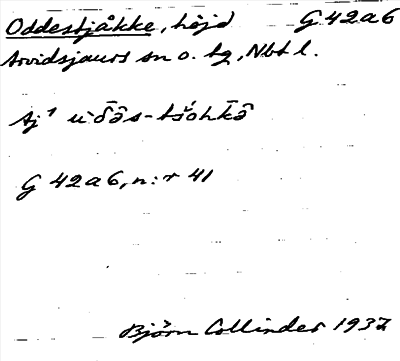 Oddestjåkke, höjd G 42a6
Arvidsjaurs sn o. tg, Nbt l.
Aj¹ u·δ̄ə̑s-tšoh̄kə̑
G 42a6, n:r 41
Björn Collinder 1937